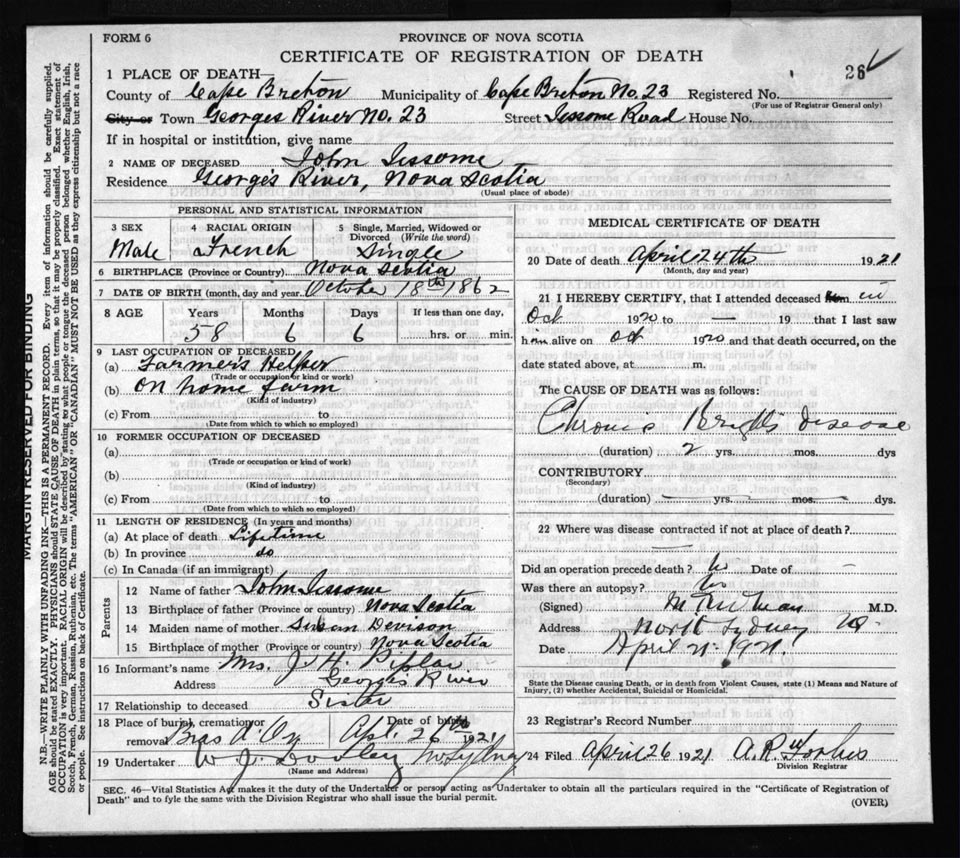 FORM 6
PROVINCE OF NOVA SCOTIA
CERTIFICATE OF REGISTRATION OF DEATH
26
1 PLACE OF DEATH—
County of Cape Breton Municipality of Cape Breton No. 23 Registered No.
(For use of Registrar General only)
City or Town Georges River No. 23 Street Jessome Road House No.
If in hospital or institution, give name
2 NAME OF DECEASED John Jessome
Residence George's River, Nova Scotia
(Usual place of abode)
PERSONAL AND STATISTICAL INFORMATION
3 SEX Male
4 RACIAL ORIGIN French
5 Single, Married, Widowed or Divorced (Write the word) Single
6 BIRTHPLACE (Province or Country) Nova Scotia
7 DATE OF BIRTH (month, day and year) October 18th 1862
8 AGE Years Months Days If less than one day,
58 6 6 hrs. or min.
9 LAST OCCUPATION OF DECEASED
(a) Farmer's Helper
(Trade or occupation or kind of work)
(b) On home farm
(Kind of industry)
(c) From to
(Date from which to which so employed)
10 FORMER OCCUPATION OF DECEASED
(a)
(Trade or occupation or kind of work)
(b)
(Kind of industry)
(c) From to
(Date from which to which so employed)
11 LENGTH OF RESIDENCE (In years and months)
(a) At place of death Lifetime
(b) In province do
(c) In Canada (if an immigrant)
Parents
12 Name of father John Jessome
13 Birthplace of father (Province or country) Nova Scotia
14 Maiden name of mother Susan Devison
15 Birthplace of mother (Province or country) Nova Scotia
16 Informant's name Mrs. J. H.
Address Georges River
17 Relationship to deceased Sister
18 Place of burial, cremation or removal Bras d'Or Date of burial Apl. 26th 1921
19 Undertaker W. J. Dooley N. Sydney
(Name and Address)
MEDICAL CERTIFICATE OF DEATH
20 Date of death April 24th 1921
(Month, day and year)
21 I HEREBY CERTIFY, that I attended deceased from in
Oct 1920 to 19 that I last saw
him alive on Oct 1920 and that death occurred, on the
date stated above, at m.
The CAUSE OF DEATH was as follows:
Chronic Brights Disease
(duration) 2 yrs. mos. dys
CONTRIBUTORY
(Secondary)
(duration) yrs. mos. dys.
22 Where was disease contracted if not at place of death?
Did an operation precede death? No Date of —
Was there an autopsy? No
(Signed) M. D.
Address North Sydney
Date April 1921
State the Disease causing Death, or in death from Violent Causes, state (1) Means and Nature of Injury, (2) whether Accidental, Suicidal or Homicidal.
23 Registrar's Record Number
24 Filed April 26 1921 A. R. Forbes
Division Registrar
SEC. 46—Vital Statistics Act makes it the duty of the Undertaker or person acting as Undertaker to obtain all the particulars required in the "Certificate of Registration of
Death" and to fyle the same with the Division Registrar who shall issue the burial permit.
(OVER)
MARGIN RESERVED FOR BINDING
N.B.—WRITE PLAINLY WITH UNFADING INK—THIS IS A PERMANENT RECORD. Every item of information should be carefully supplied.
AGE should be stated EXACTLY. PHYSICIANS should STATE CAUSE OF DEATH in plain terms, so that it may be properly classified. Exact statement of
OCCUPATION is very important. RACIAL ORIGIN will be described by stating to what people or tongue the deceased person belonged whether English, Irish,
Scotch, French, German, Russian, Ruthenian, etc. The terms "AMERICAN" or "CANADIAN" MUST NOT BE USED as they express citizenship but not a race
or people. See instructions on back of Certificate.